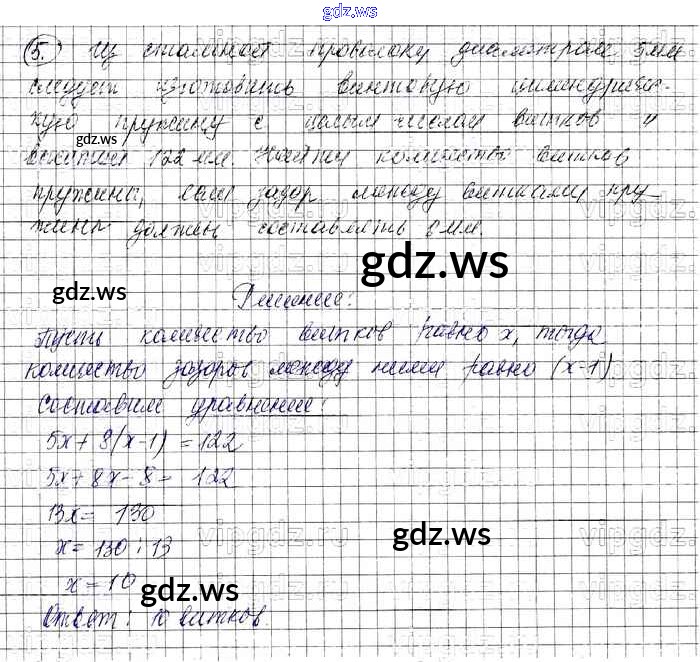 gdz.ws
5. Из стальной проволоки диаметром 5 мм
следует изготовить винтовую цилиндричес-
кую пружину с целым числом витков и
gdz.ws
высотой 122 мм. Найти количество витков
пружины, если зазор между витками пру-
жины должен составлять 8 мм.
gdz.ws
gdz.ws
Решение:
Пусть количество витков равно x, тогда
количество зазоров между ними равно (x-1).
Составим уравнение:
5x + 8(x-1) = 122
5x + 8x - 8 = 122
13x = 130
gdz.ws
x = 130 : 13
x = 10
gdz.ws
gdz.ws
Ответ: 10 витков.